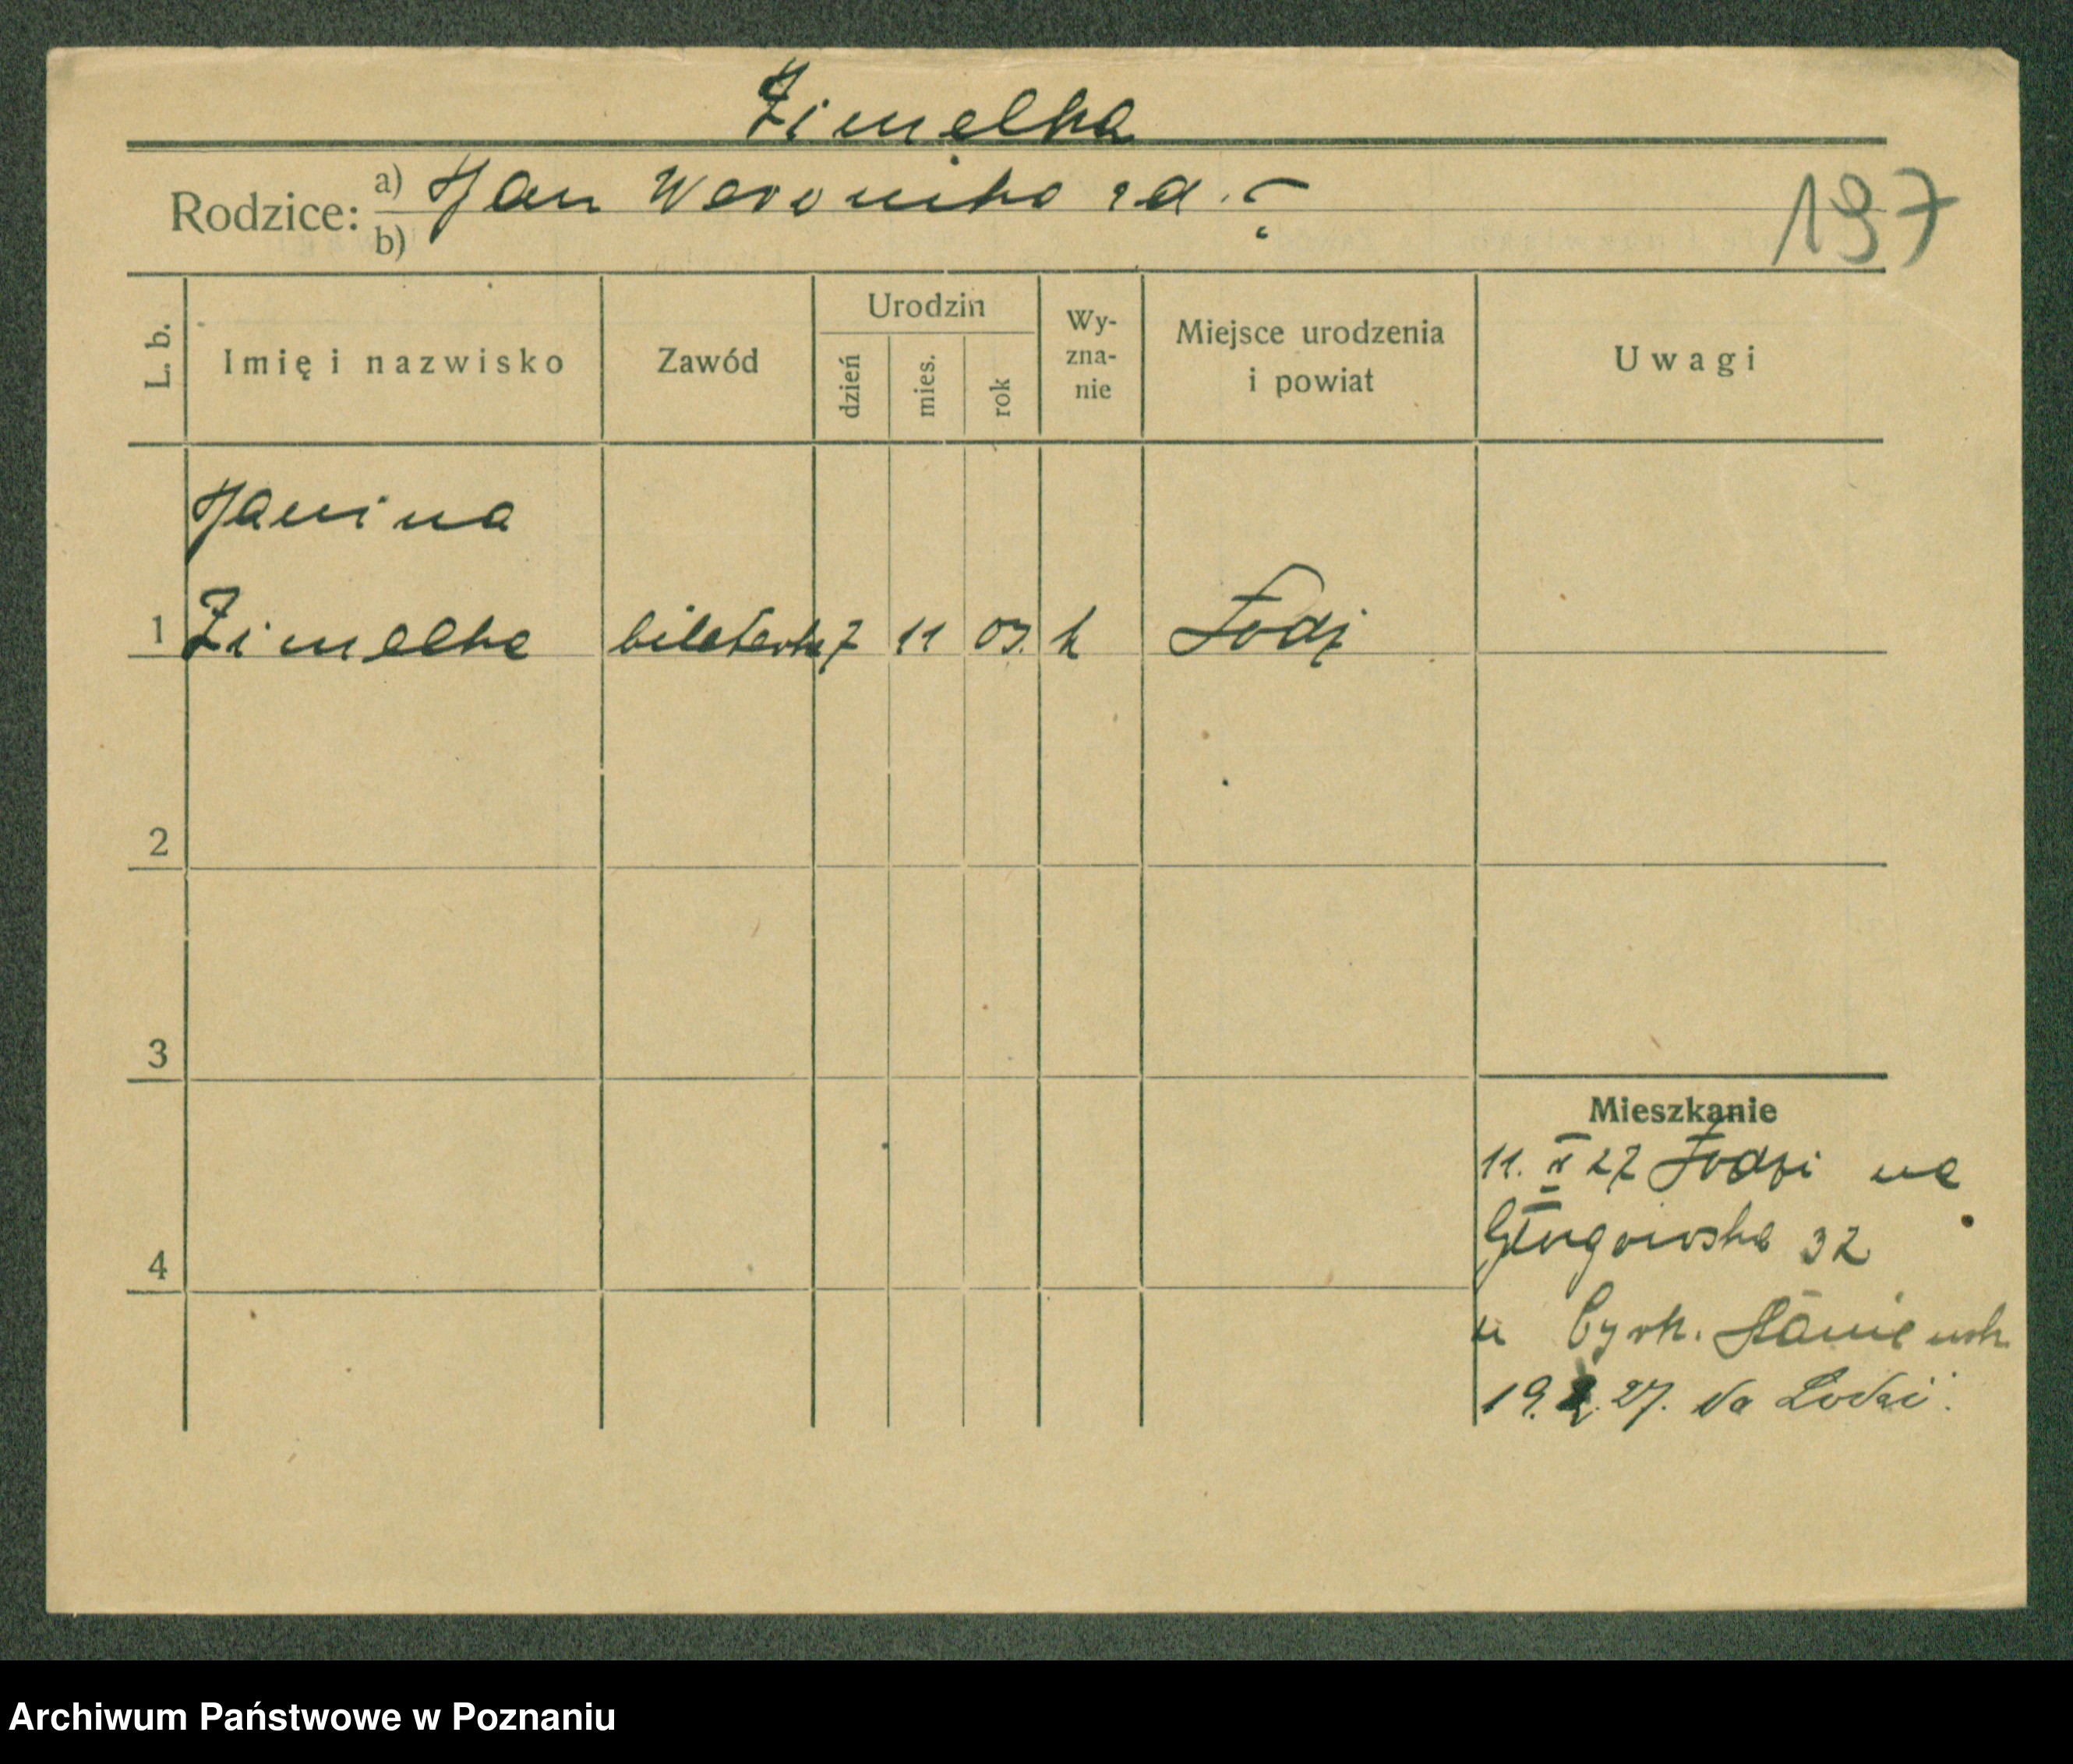 Zimelka
Rodzice: a) Jan Weronika rd. ?
b)
197
L. b. Imię i nazwisko Zawód Urodzin dzień mies. rok Wy-zna-nie Miejsce urodzenia i powiat Uwagi
Janina
1 Zimelka bileterka 7 11 03. k Łódź
2
3
Mieszkanie
11. 27 Łodzi na
Głogowska 32
4
u Cyrk. Staniewsk.
19. 27. do Łodzi.
Archiwum Państwowe w Poznaniu